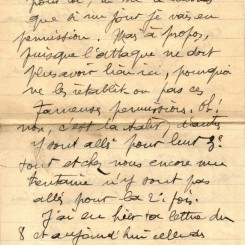 que si un jour je vais en
permission. Mais à propos,
puisque l'attaque ne doit
plus avoir lieu ici, pourquoi
ne les rétablit on pas ces
fameuses permissions. Oh!
non, c'est la d'autres
y sont allés pour leur 3e
tour et chez nous encore une
trentaine n'y sont pas
allés pour la 2e fois.
J'ai eu hier ta lettre du
8 et aujourd'hui celle du